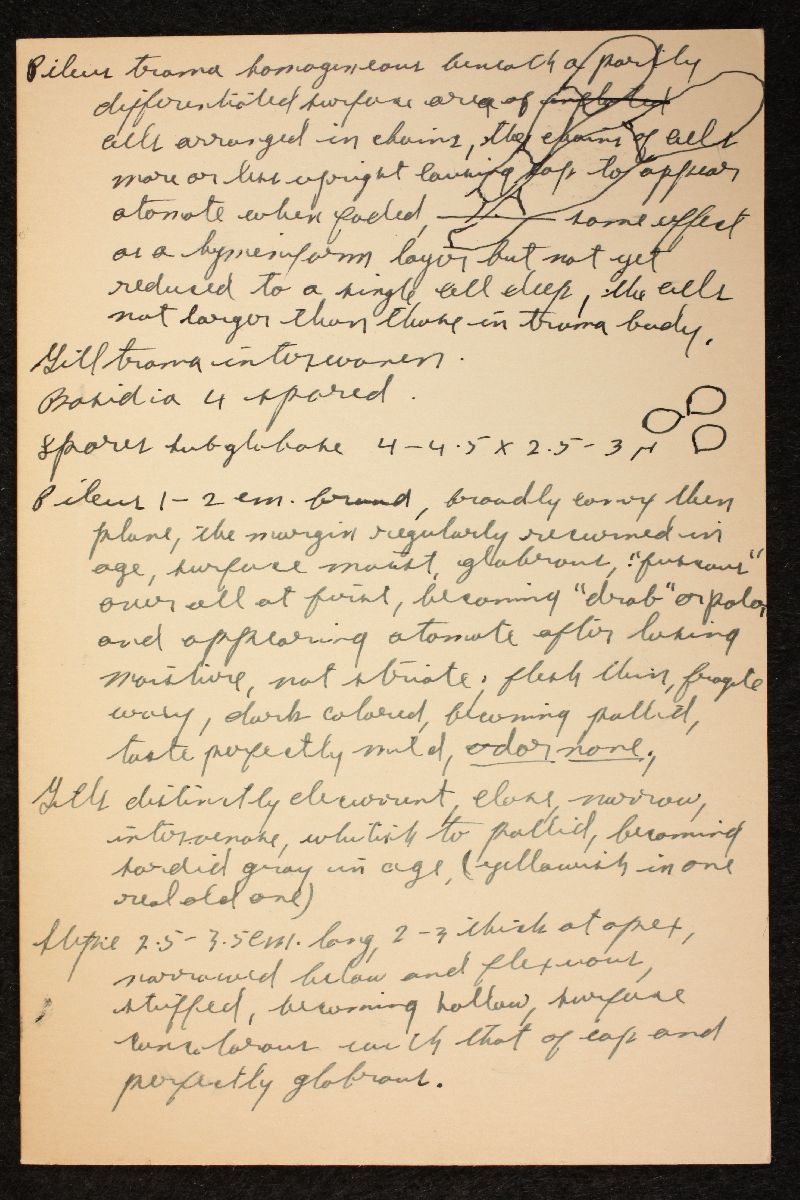 Pileus trama homogeneous beneath a partly
differentiated surface area of inflated
cells arranged in chains, the chains of cells
more or less upright causing cap to appear
atomate when faded, ——— same effect
as a hymeniform layer but not yet
reduced to a single cell deep, the cells
not larger than those in trama body.
Gill trama interwoven.
Basidia 4 spored.
Spores subglobose 4-4.5 x 2.5-3 µ
Pileus 1-2 cm. broad, broadly convex then
plane, the margin regularly recurved in
age, surface moist, glabrous, "fuscous"
over all at first, becoming "drab" or paler
and appearing atomate after losing
moisture, not striate; flesh thin, fragile
waxy, dark colored, becoming pallid,
taste perfectly mild, odor none.,
Gills distinctly decurrent, close, narrow,
intervenose, whitish to pallid, becoming
sordid gray in age, (yellowish in one
real old one)
Stipe 2.5-3.5 cm. long, 2-3 thick at apex,
narrowed below and flexuous,
stuffed, becoming hollow, surface
concolorous with that of cap and
perfectly glabrous.